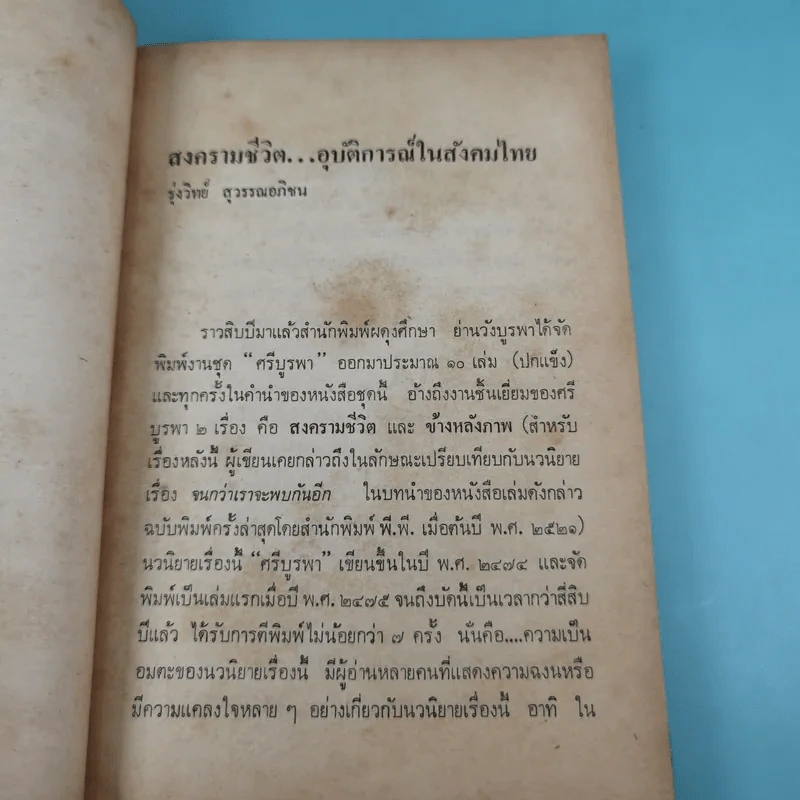 สงครามชีวิต...อุบัติการณ์ในสังคมไทย
รุ่งวิทย์ สุวรรณอภิชน
ราวสิบปีมาแล้วสำนักพิมพ์ผดุงศึกษา ย่านวังบูรพาได้จัด
พิมพ์งานชุด “ศรีบูรพา” ออกมาประมาณ ๑๐ เล่ม (ปกแข็ง)
และทุกครั้งในคำนำของหนังสือชุดนี้ อ้างถึงงานชิ้นเยี่ยมของศรี
บูรพา ๒ เรื่อง คือ สงครามชีวิต และ ข้างหลังภาพ (สำหรับ
เรื่องหลังนี้ ผู้เขียนเคยกล่าวถึงในลักษณะเปรียบเทียบกับนวนิยาย
เรื่อง จนกว่าเราจะพบกันอีก ในบทนำของหนังสือเล่มดังกล่าว
ฉบับพิมพ์ครั้งล่าสุดโดยสำนักพิมพ์ พี.พี. เมื่อต้นปี พ.ศ. ๒๕๒๑)
นวนิยายเรื่องนี้ “ศรีบูรพา” เขียนขึ้นในปี พ.ศ. ๒๔๗๔ และจัด
พิมพ์เป็นเล่มแรกเมื่อปี พ.ศ. ๒๔๗๕ จนถึงบัดนี้เป็นเวลากว่าสี่สิบ
ปีแล้ว ได้รับการตีพิมพ์ไม่น้อยกว่า ๗ ครั้ง นั่นคือ....ความเป็น
อมตะของนวนิยายเรื่องนี้ มีผู้อ่านหลายคนที่แสดงความฉงนหรือ
มีความแคลงใจหลาย ๆ อย่างเกี่ยวกับนวนิยายเรื่องนี้ อาทิ ใน